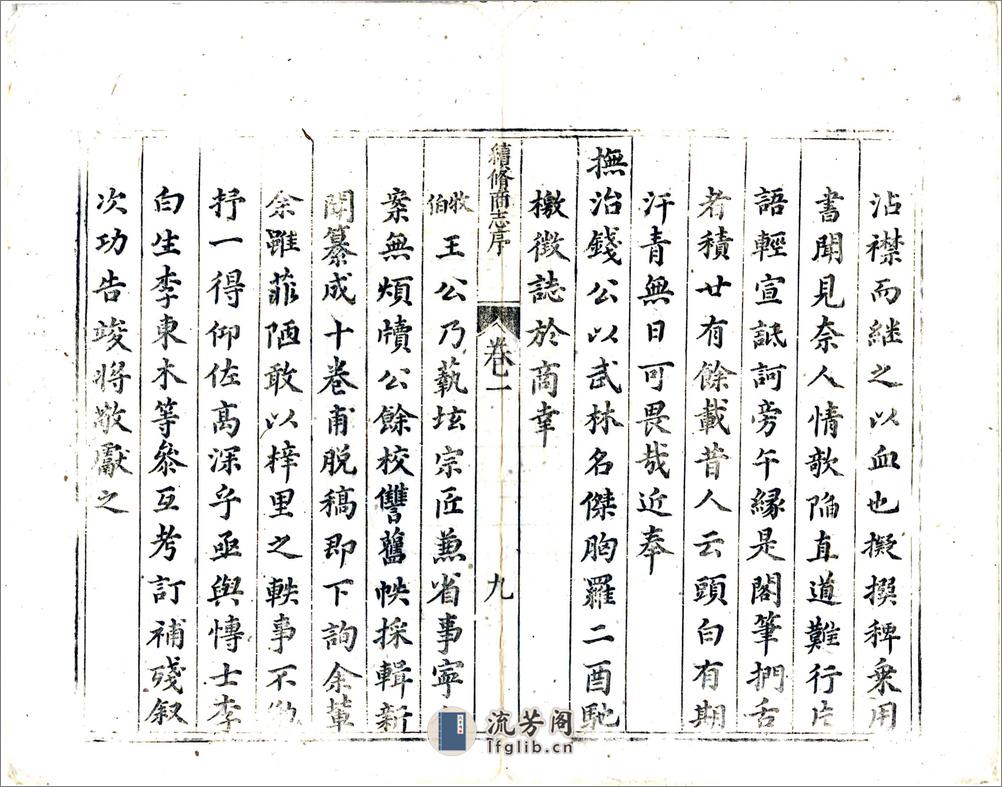 沾襟而継之以血也擬撰稗乗用
書聞見奈人情欹陥直道難行片
語輕宣詆訶旁午縁是閣筆捫舌
者積廿有餘載昔人云頭白有期
汗青無日可畏哉近奉
撫治錢公以武林名傑胸羅二酉馳
檄徵誌於商幸
續脩商志序
卷一
九
牧伯王公乃蓺坛宗匠兼省事寧
案無煩牘公餘校讐舊帙採輯新
聞纂成十卷甫脱稿即下詢余輩
余雖菲陋敢以梓里之軼事不勉
抒一得仰佐高深乎亟與愽士李
白生李東木等叅互考訂補殘叙
次功告竣将敬獻之
流芳阁
lfglib.cn